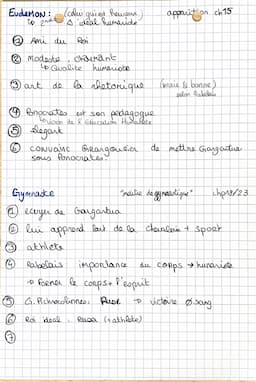 Eudemon : (celui qui est heureux) apparition ch 15
↳ idéal humaniste
① Ami du Roi
② Modeste, charmant
↳ Qualité humaniste
③ art de la rhétorique (vraie & bonne)
selon Rabelais
④ Ponocrates est son pédagogue
↳ vision de l'éducation Humaniste
⑤ élégant
⑥ convainc Grangousier de mettre Gargantua
sous Ponocrates.
Gymnaste "maître de gymnastique" chp 18/23
① écuyer de Gargantua
② lui apprend l'art de la chevalerie + sport
③ athlète
④ Rabelais importance du corps → humaniste
→ former le corps + l'esprit
⑤ G. Picrocholines. Ruse → victoire Ø sang
⑥ Roi idéal. Ruse (+ athlète)
⑦